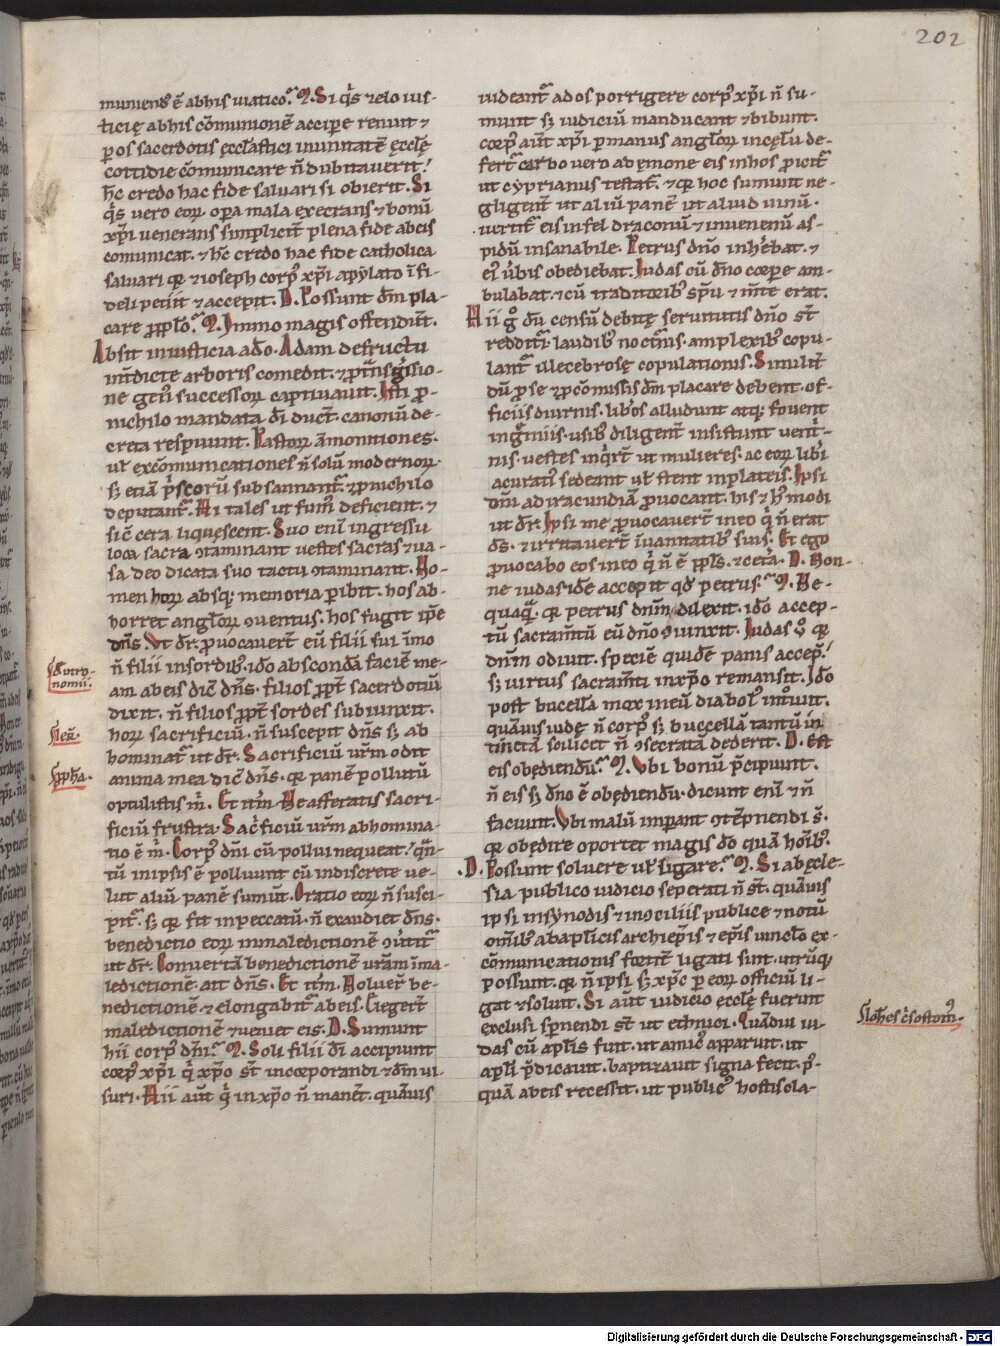 202
muniendꝰ ē abhis uiatico.ᷓ ᛖ. Si q̇s zelo ius-
ticię abhis cōmunionē accipe renuit ⁊
p os sacerdotis ęcclastici inunitatē ęcclę
cottidie cōmunicare n̄ dubitauerit.ᷓ
h̄c credo hac fide saluari si obierit. Si
q̇s uero eoꝝ opa mala execrans ⁊ bonū
xp̄i uenerans simplicit̄ plena fide abeis
comunicat. ⁊ h̄c credo hac fide catholica
saluari qꝛ ⁊ ioseph corpꝰ xp̄i apylato īfi-
deli petiit ⁊ accepit. D. Possunt dm̄ pla-
care ꝓ pp̄lo.ᷓ M. Immo magis offendunt̄.
Absit iniusticia ado. Adam defructu
int̄dicte arboris comedit. ⁊ ꝓt̄nsg̓ssio-
ne genꝰ successoꝝ captiuauit. Isti ꝓ
nichilo mandata d̄i ducT̄. canonū de-
creta respuunt. Pastoꝝ āmonitiones.
ul̄ excōmunicationes n̄ solū modernoꝝ
sꝫ etiā p̓scorū subsannant. ⁊ ꝓ nichilo
deputant̄. Hi tales ut fumꝰ deficient. ⁊
sic̄ cera liquęscent. Suo eni ingressu
loca sacra ꝯtaminant uestes sacras ⁊ ua-
sa deo dicata suo tactu ꝯtaminant. Ho-
men hoꝝ absqꝫ memoria pibit. hos ab-
horret angl̄oꝝ ꝯuentus. hos fugit ip̄e
dn̄s. Vt dr̄. ꝓuocauerT̄ eū filii sui īmo
n̄ filii insordibꝰ. ido abscondā faciē me-
am abeis dic̄ dn̄s. filios ꝓpt̄ sacerdotiū
dixit. n̄ filios ꝓpt̄ sordes subiunxit.
hoꝝ sacrificiū. n̄ suscepit dn̄s sꝫ ab
hominat̄ ut dr̄. Sacrificiū ur̄m odit
anima mea dic̄ dn̄s. qꝛ panē pollutū
optulistis m̓. Et it̄m. Ne afferatis sacri-
ficiū frustra. Sac̓ficiū ur̄m abhomina-
tio ē m̓. Corpꝰ dn̄i cū pollui nequeat.ᷓ q̄n-
tū inipsis ē polluunt cū indiscrete ue-
lut aliū panē sumūt. Oratio eoꝝ n̄ susci-
pit̄. sꝫ qꝛ fit inpeccatū. n̄ exaudiet dn̄s.
benedictio eoꝝ inmaledictionē ꝯuertit̄
ut dr̄. Conuertā benedictionē ur̄am īma-
ledictionē ait dn̄s. Et it̄m. Noluer̄ be-
nedictionē. ⁊ elongabit̄ abeis. elegerT̄
maledictionē ⁊ ueniet eis. D. Sumunt
hii corpꝰ dn̄i.ᷓ M. Soli filii d̄i accipiunt
corpꝰ xp̄i q̓ xp̄o s̄t incorporandi ⁊ dm̄ ui-
suri. Hii aūt q̓ in xp̄o n̄ manēt. quāuis
Deutro-
nomiū.
Ieꝛ.
Sopha.
uideant̄ ad os porrigere corpꝰ xp̄i n̄ su-
munt sꝫ iudiciū manducant ⁊ bibunt.
corpꝰ aūt xp̄i p manus angl̄oꝝ incęlū de-
fert̄ carbo uero ab demone eis inhos ꝓicit̄
ut cyprianus testat̄. ⁊ qꝛ hoc sumunt ne-
gligent̄ ut aliū panē ut aliud uinū.
uertit̄ eis infel draconū ⁊ inuenenū as-
pidū insanabile. Petrus dn̄o inh̓ebat. ⁊
eiꝰ ūbis obediebat. Iudas cū dn̄o corpe am-
bulabat. ⁊ cū traditoribꝰ spū ⁊ m̄te erat.
Hii g̊ dū censū debitę seruitutis dn̄o s̄t
reddituri laudibꝰ noctnis. amplexibꝰ copu-
lant̄ illecebrosę copulationis. Similit̄
dū ꝓ se ⁊ ꝓ cōmissis dm̄ placare debent. of-
ficiis diurnis. lib̓os alludunt atqꝫ fouent
ingr̄miis. usibꝰ diligent̄ insistunt uent̓-
nis. uestes inq̓rt̄ ut mulieres. ac eoꝝ lib̓i
acuratiꝰ sedeant ul̄ stent inplateis. Ipsi
dm̄ ad iracundiā ꝓuocant. his ⁊ hꝰmodi
ut dr̄. Ipsi me ꝓuocauerT̄ in eo q̓ n̄ erat
ds̄. ⁊ irritauerT̄ īuanitatibꝰ suis. Et ego
ꝓuocabo eos in eo q̓ n̄ ē pp̄ls. ⁊ cetā. D. Non-
ne iudas idē accepit qd̄ petrus.ᷓ M. Ne-
quaq̄. qꝛ petrus dn̄m dilexit. ido accep-
tū sacram̄tū eū dn̄o ꝯiunxit. Iudas ꝰo qꝛ
dn̄m odiuit. speciē quidē panis accepit.
sꝫ uirtus sacram̄ti in xp̄o remansit. Ido
post bucellā mox ineū diabolꝰ int̓uit.
quāuis iudę n̄ corpꝰ sꝫ buccellā tantū in
tinctā scilicet n̄ ꝯsecratā dederit. D. Est
eis obędiendū.ᷓ M. Vbi bonū p̄cipiunt.
n̄ eis sꝫ dn̄o ē obędiendū. dicunt eni ⁊ n̄
faciunt. Vbi malū impant ꝯtēpnendi s̄.
qꝛ obędire oportet magis do quā hoībꝰ.
D. Possunt soluere ul̄ ligare.ᷓ M. Si ab ęcle-
sia publico iudicio seperati n̄ s̄t. quāuis
ipsi insynodis ⁊ inꝯciliis publice ⁊ notū
om̄ibꝰ ab aplicis archiep̄is ⁊ ep̄is uinclo ex-
cōmunicationis fort̄it̄ ligati sint. utrūqꝫ
possunt. qꝛ n̄ ipsi sꝫ xp̄c p eoꝝ officiū li-
gat ⁊ soluit. Si aūt iudicio ecclę fuerint
exclusi spnendi s̄t ut ethnici. Quādiu iu-
das cū aplis fuit. ut amicꝰ apparuit. ut
apli p̄dicauit. baptizauit signa fecit. p̓-
quā abeis recessit. ut publicꝰ hostis ola-
Ioh̄es c̓sostomꝰ.
Digitalisierung gefördert durch die Deutsche Forschungsgemeinschaft - DFG